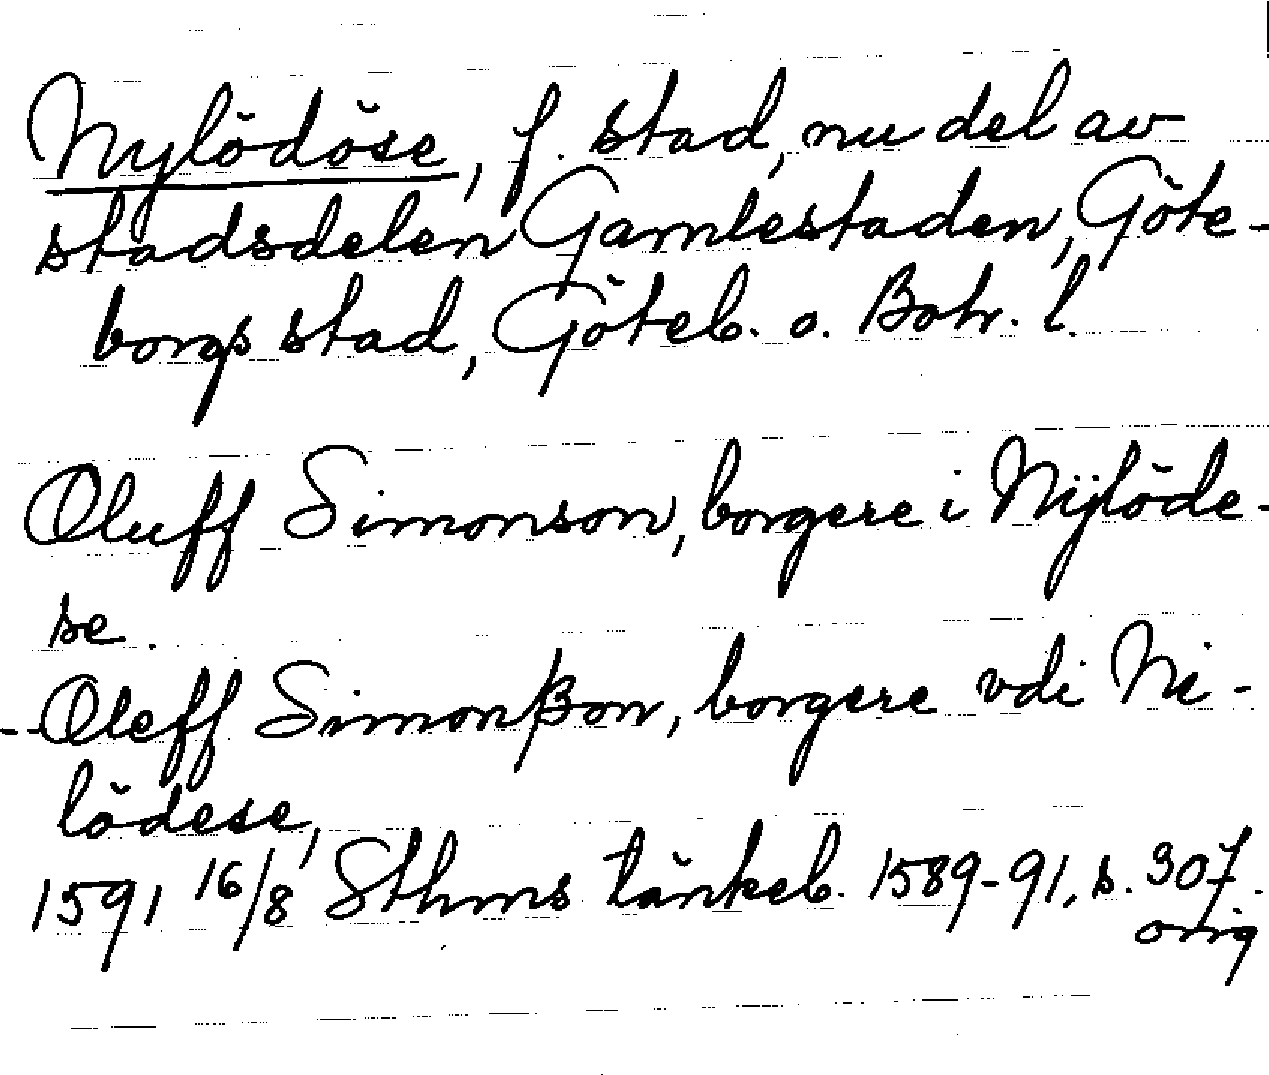 Nylödöse, f. stad, nu del av
stadsdelen Gamlestaden, Göte-
borgs stad, Göteb. o. Boh. l.
Oluff Simonson, borgere i Nÿlöde-
se.
-- Oleff Simonßon, borgere vdi Ni-
lödese,
1591 16/8 Sthms tänkeb. 1589-91, s. 307.
orig